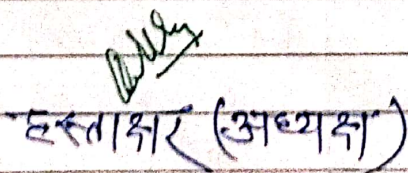 हस्ताक्षर (अध्यक्ष)